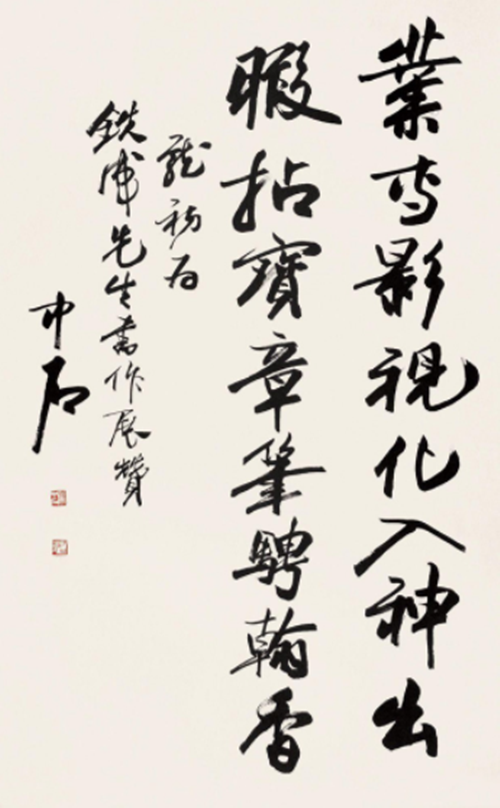 業专影視化入神出
暇拈寶章筆騁翰香
龍初为
鉄成先生書作展贊
中石